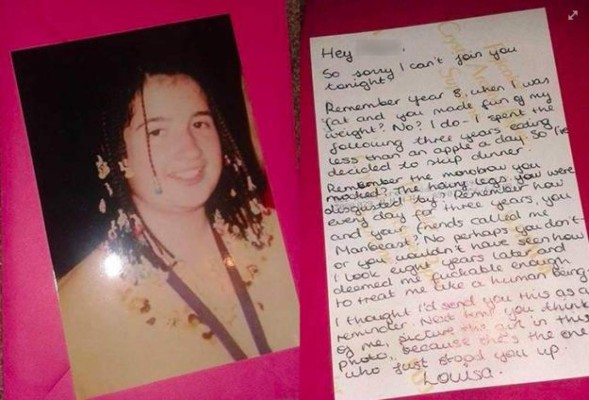 Hey
So sorry I can't join you
tonight
Remember year 8, when I was
fat and you made fun of my
weight? No? I do - I spent the
following three years eating
less than an apple a day. So I've
decided to skip dinner.
Remember the monobrow you
mocked? The hairy legs you were
disgusted by? Remember how
every day for three years, you
and your friends called me
Manbeast? No perhaps you don't -
or you wouldn't have seen how
I look eight years later and
deemed me fuckable enough
to treat me like a human being.
I thought I'd send you this as a
reminder. Next time you think
of me, picture the girl in this
photo, because she's the one
who just stood you up.
Louisa.